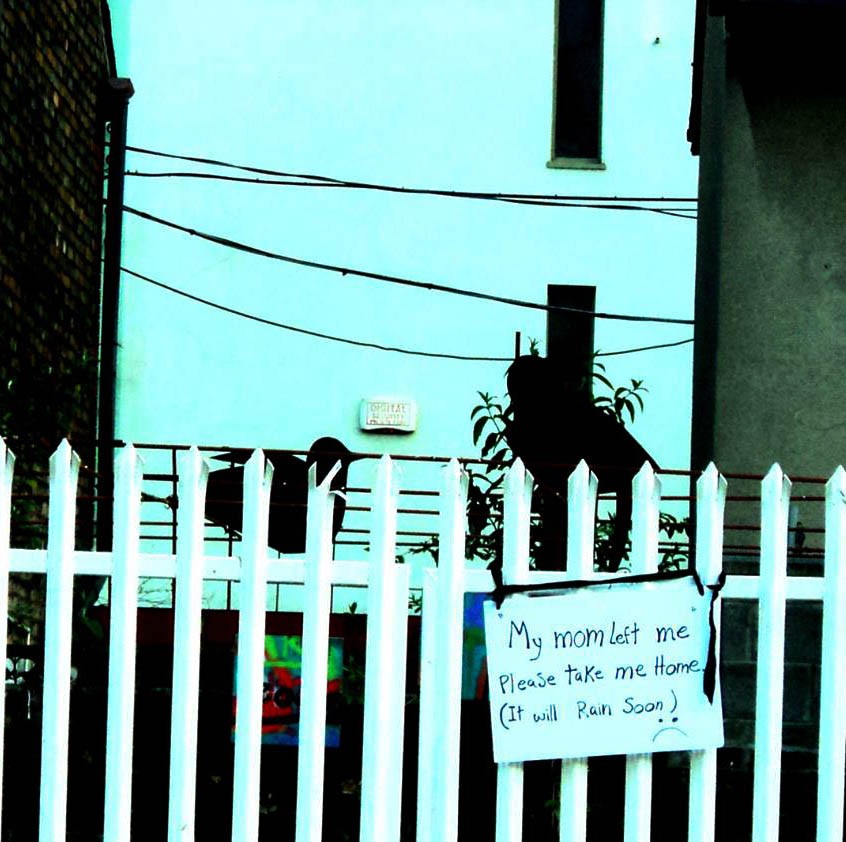 DIGITAL
My mom Left me
Please take me Home.
(It will Rain Soon)